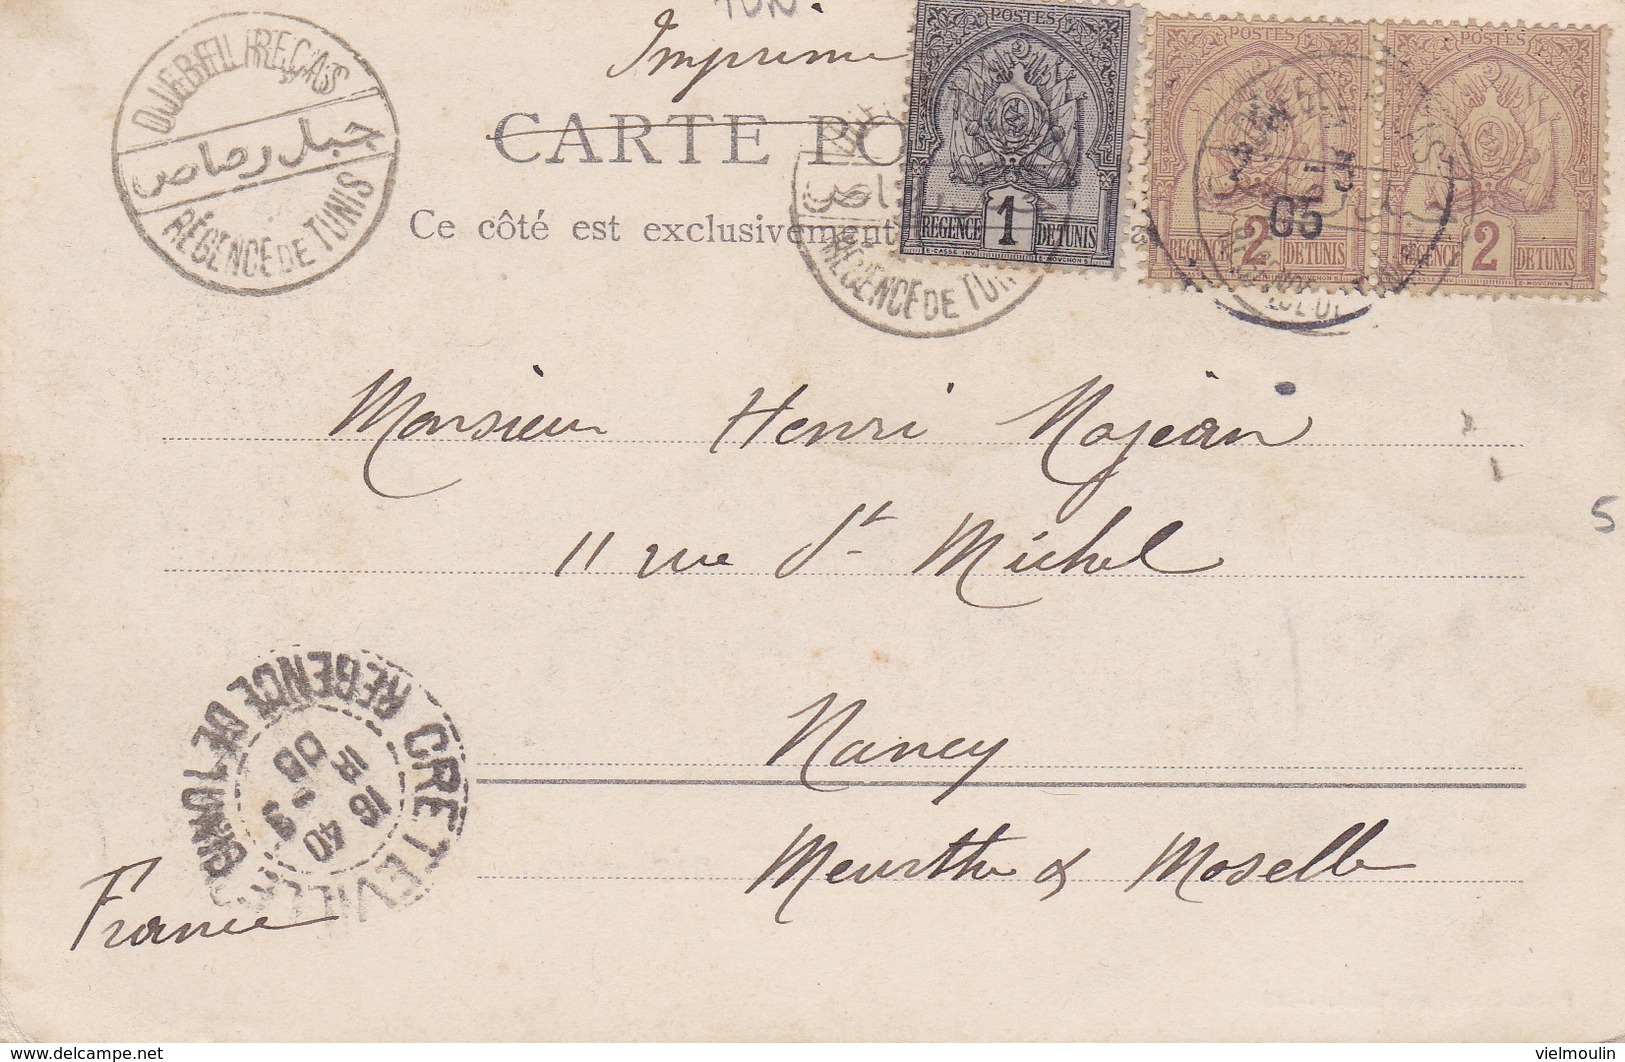 TUN.
Imprimé
CARTE PO
Ce côté est exclusivement
DJEBEL REÇAS
جبل رصاص
RÉGENCE DE TUNIS
RÉGENCE DE TUN
POSTES
RÉGENCE 1 DE TUNIS
E·CASSE INV. E·MOUCHON S.
POSTES
RÉGENCE 2 DE TUNIS
POSTES
RÉGENCE 2 DE TUNIS
E·MOUCHON S.
05
Monsieur Henri Nojean
11 rue St Michel
5
Nancy
Meurthe & Moselle
France
CRETEVILLE
REGENCE DE TUNIS
16 40
9
delcampe.net
vielmoulin